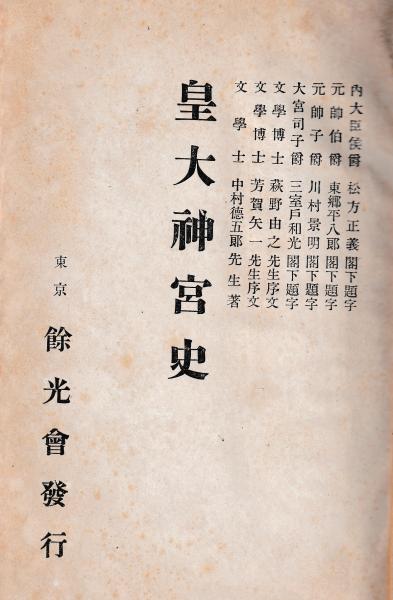 内大臣侯爵 松方正義閣下題字
元帥伯爵 東郷平八郎閣下題字
元帥子爵 川村景明閣下題字
大宮司子爵 三室戸和光閣下題字
文學博士 萩野由之先生序文
文學博士 芳賀矢一先生序文
文學士 中村德五郎先生著
皇大神宮史
東京 餘光會發行